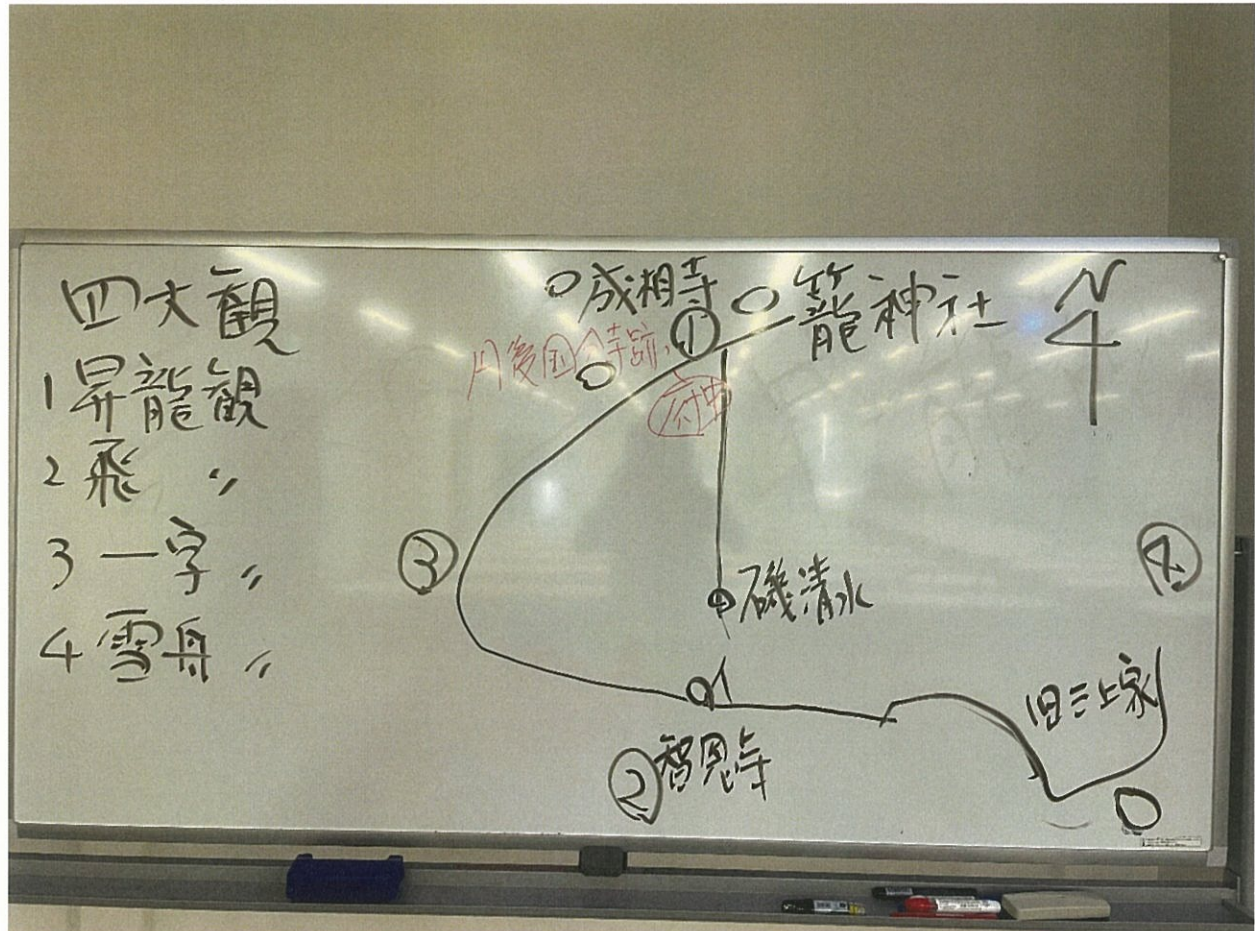 四大観
1 昇龍観
2 飛 〃
3 一字 〃
4 雪舟 〃
成相寺
①
籠神社
N
丹後国分寺跡
府中
③
磯清水
④
旧三上家
②
智恩寺